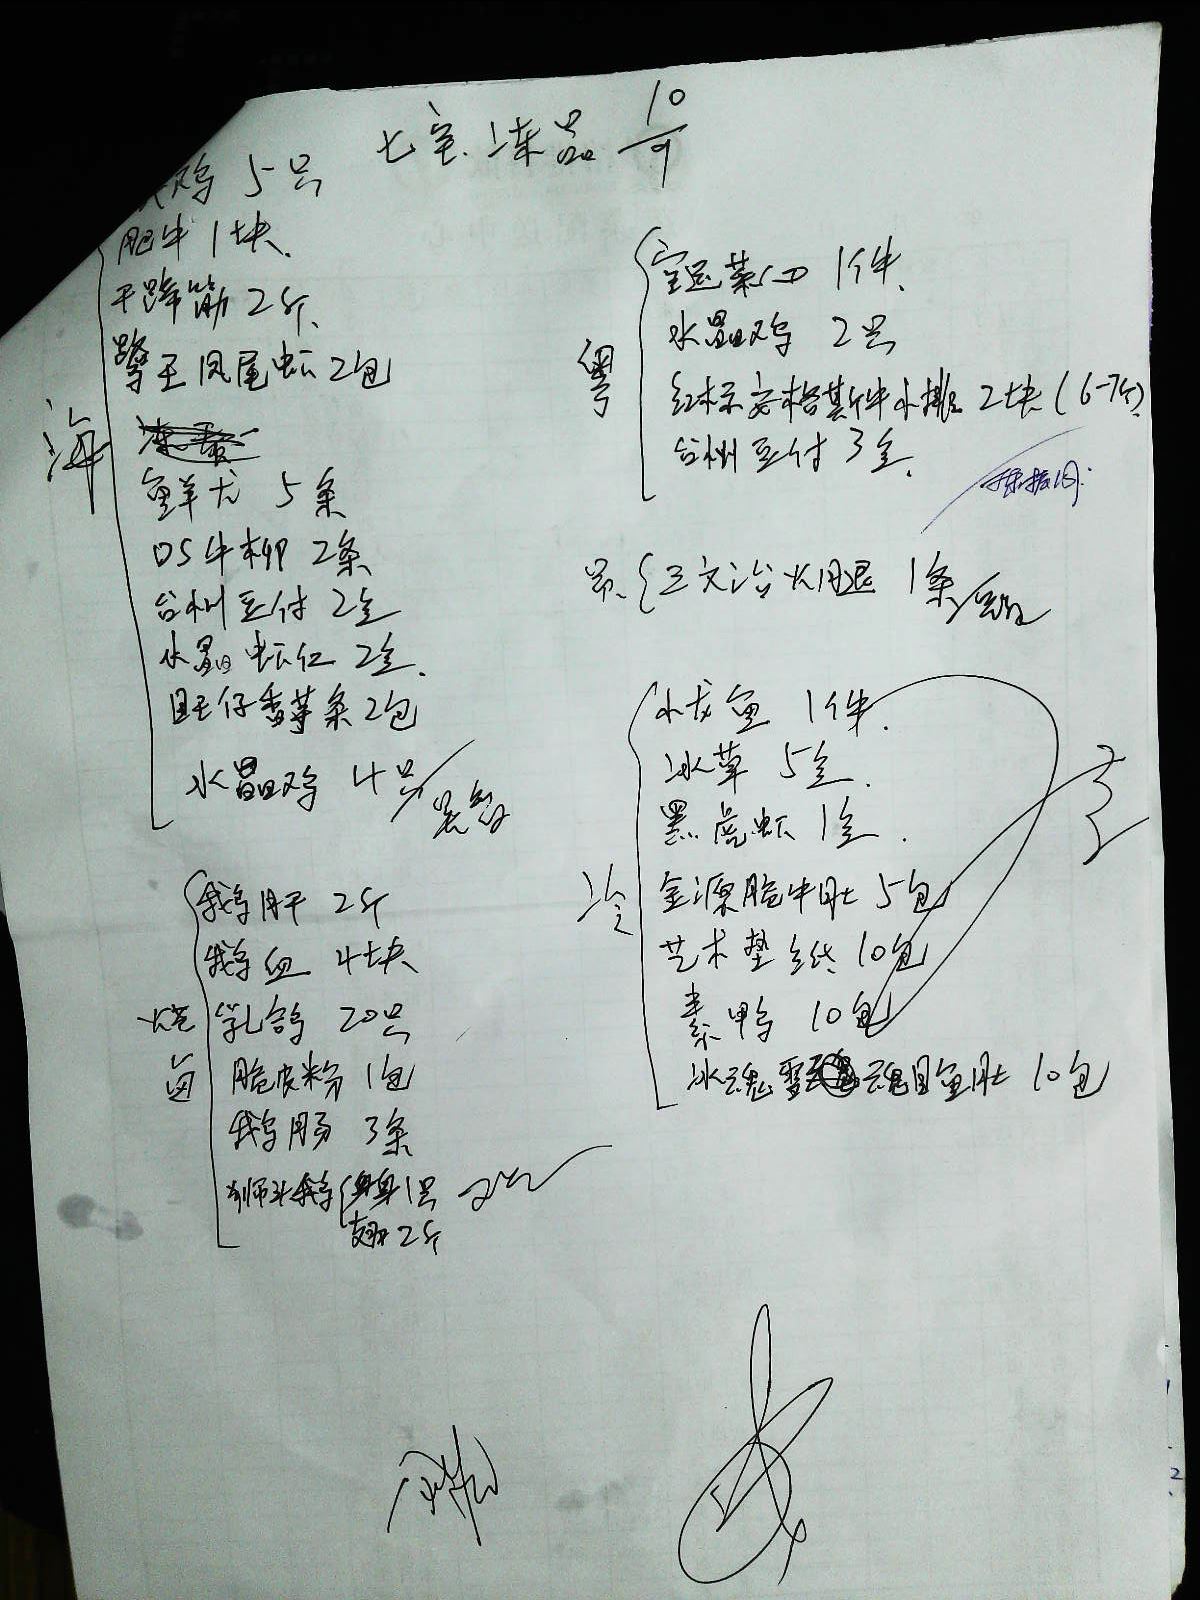 七宝.冻品 10/9
鸡 5只
肥牛 1块.
干蹄筋 2斤.
擎王凤尾虾 2包
海
鲜尤 5条
05牛柳 2条
台州豆付 2盒
水晶虾仁 2盒.
旺仔香芋条 2包
水晶鸡 4只
烧卤
鹅肝 2斤
鹅血 4块
乳鸽 20只
脆皮粉 1包
鹅肠 3条
狮头鹅 身1只
翅2斤
粤
1件.
水晶鸡 2只
红标安格斯牛小排 2块(6-7斤)
台州豆付 3盒.
三文治火腿 1条
冷
小龙鱼 1件.
冰草 5盒.
黑虎虾 1盒.
金源脆牛肚 5包
艺术垫纸 10包
素鸭 10包
冰魂 魂目鱼肚 10包